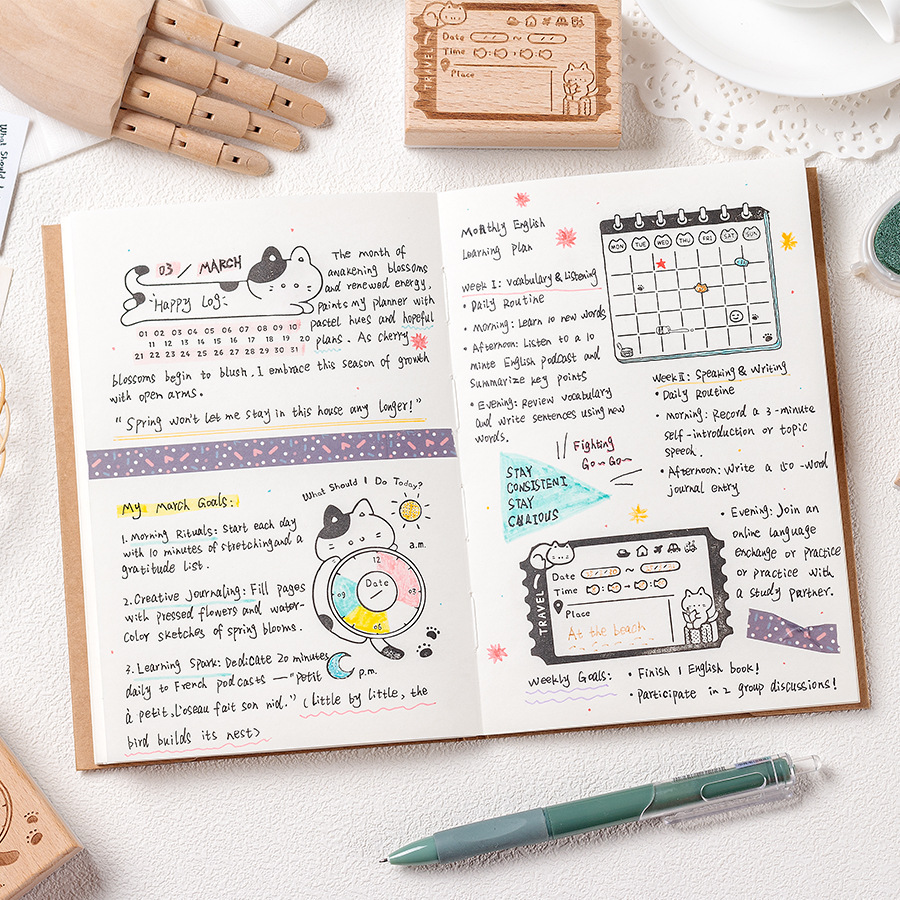 What Should I
TRAVEL
Date ~
Time
Place
03 / MARCH
Happy Log
01 02 03 04 05 06 07 08 09 10
11 12 13 14 15 16 17 18 19 20
21 22 23 24 25 26 27 28 29 30 31
The month of
awakening blossoms
and renewed energy,
paints my planner with
pastel hues and hopeful
plans. As cherry
blossoms begin to blush, I embrace this season of growth
with open arms.
"Spring won't let me stay in this house any longer!"
My March Goals:
1. Morning Rituals: Start each day
with 10 minutes of stretching and a
gratitude list.
2. Creative journaling: Fill pages
with pressed flowers and water-
color sketches of spring blooms.
3. Learning Spark: Dedicate 20 minutes
daily to French podcasts — "Petit
à petit, l'oseau fait son nid." (little by little, the
bird builds its nest>
What Should I Do Today?
a.m.
12
03
06
09
Date
/
p.m.
Monthly English
Learning plan
Week I: Vocabulary & Listening
• Daily Routine
• Morning: Learn 10 new words
• Afternoon: Listen to a 10
minte English podcast and
Summarize key points
• Evening: Review vocabulary
and write sentences using new
words.
MON TUE WED THU FRI SAT SUN
Week II: Speaking & Writing
• Daily Routine
• Morning: Record a 3-minute
self-introduction or topic
speech.
• Afternoon: Write a 150-word
journal entry
• Evening: Join an
online language
exchange or practice
or practice with
a study partner.
Fighting
Go~Go~
STAY
CONSISTENT
STAY
CURIOUS
TRAVEL
Date ~
Time
Place
At the beach
Weekly Goals:
• Finish 1 English book!
• participate in 2 group discussions!